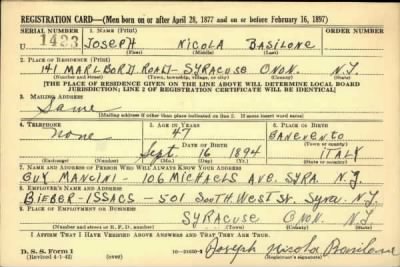 REGISTRATION CARD—(Men born on or after April 28, 1877 and on or before February 16, 1897)
SERIAL NUMBER 1. NAME (Print) ORDER NUMBER
U 1433 JOSEPH NICOLA BASILONE
(First) (Middle) (Last)
2. PLACE OF RESIDENCE (Print)
141 MARLBORO ROAD - SYRACUSE ONON. N.Y.
(Number and street) (Town, township, village, or city) (County) (State)
[THE PLACE OF RESIDENCE GIVEN ON THE LINE ABOVE WILL DETERMINE LOCAL BOARD
JURISDICTION; LINE 2 OF REGISTRATION CERTIFICATE WILL BE IDENTICAL]
3. MAILING ADDRESS
Same
[Mailing address if other than place indicated on line 2. If same insert word same]
4. TELEPHONE 5. AGE IN YEARS 6. PLACE OF BIRTH
None 47 BANEVENTO
DATE OF BIRTH (Town or county)
Sept. 16 1894 ITALY
(Exchange) (Number) (Mo.) (Day) (Yr.) (State or country)
7. NAME AND ADDRESS OF PERSON WHO WILL ALWAYS KNOW YOUR ADDRESS
GUY MANCINI - 106 MICHAELS AVE. SYRA. N.Y.
8. EMPLOYER'S NAME AND ADDRESS
BIEBER-ISSACS - 501 SOUTH WEST ST. SYRA. N.Y.
9. PLACE OF EMPLOYMENT OR BUSINESS
SYRACUSE ONON. N.Y.
(Number and street or R. F. D. number) (Town) (County) (State)
I AFFIRM THAT I HAVE VERIFIED ABOVE ANSWERS AND THAT THEY ARE TRUE.
D. S. S. Form 1
(Revised 4-1-42) (over) Joseph Nicola Basilone
(Registrant's signature)